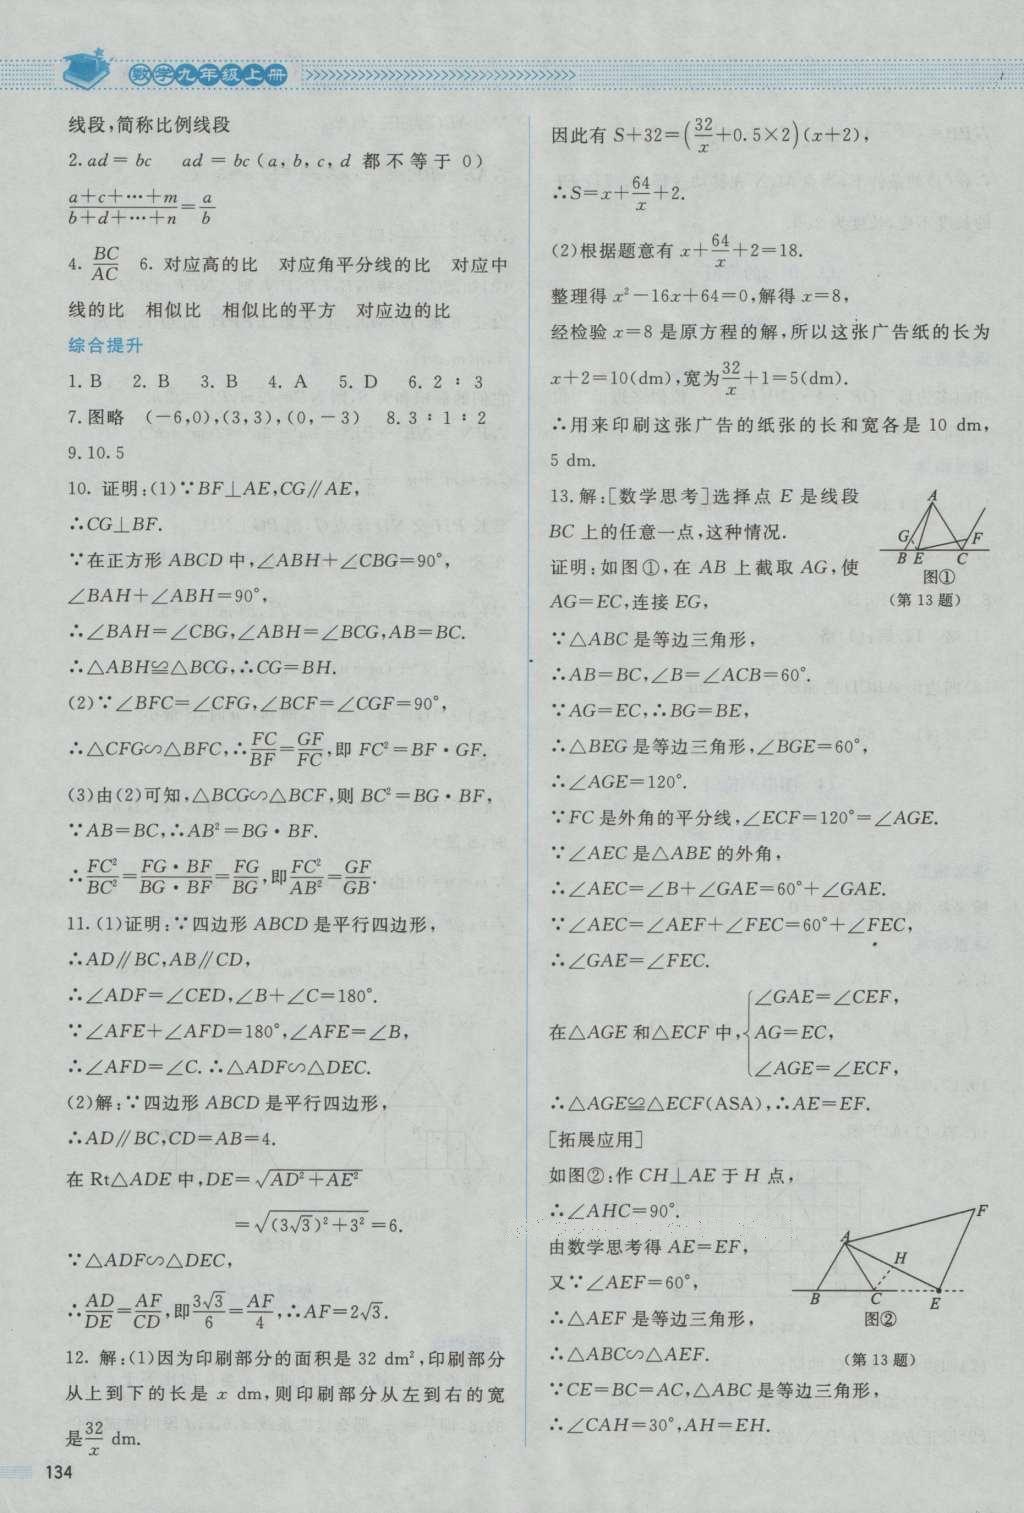 数学九年级上册
线段,简称比例线段
2. ad=bc ad=bc(a,b,c,d 都不等于 0)
(a+c+…+m)/(b+d+…+n)=a/b
4. BC/AC 6. 对应高的比 对应角平分线的比 对应中
线的比 相似比 相似比的平方 对应边的比
综合提升
1. B 2. B 3. B 4. A 5. D 6. 2∶3
7. 图略 (-6,0),(3,3),(0,-3) 8. 3∶1∶2
9. 10.5
10. 证明:(1)∵BF⊥AE,CG∥AE,
∴CG⊥BF.
∵在正方形 ABCD 中,∠ABH+∠CBG=90°,
∠BAH+∠ABH=90°,
∴∠BAH=∠CBG,∠ABH=∠BCG,AB=BC.
∴△ABH≌△BCG,∴CG=BH.
(2)∵∠BFC=∠CFG,∠BCF=∠CGF=90°,
∴△CFG∽△BFC,∴FC/BF=GF/FC,即 FC²=BF·GF.
(3)由(2)可知,△BCG∽△BCF,则 BC²=BG·BF,
∵AB=BC,∴AB²=BG·BF.
∴FC²/BC²=(FG·BF)/(BG·BF)=FG/BG,即FC²/AB²=GF/GB.
11. (1)证明:∵四边形 ABCD 是平行四边形,
∴AD∥BC,AB∥CD,
∴∠ADF=∠CED,∠B+∠C=180°.
∵∠AFE+∠AFD=180°,∠AFE=∠B,
∴∠AFD=∠C.∴△ADF∽△DEC.
(2)解:∵四边形 ABCD 是平行四边形,
∴AD∥BC,CD=AB=4.
在 Rt△ADE 中,DE=√(AD²+AE²)
=√((3√3)²+3²)=6.
∵△ADF∽△DEC,
∴AD/DE=AF/CD,即3√3/6=AF/4,∴AF=2√3.
12. 解:(1)因为印刷部分的面积是 32 dm²,印刷部分
从上到下的长是 x dm,则印刷部分从左到右的宽
是32/x dm.
134
因此有 S+32=(32/x+0.5×2)(x+2),
∴S=x+64/x+2.
(2)根据题意有 x+64/x+2=18.
整理得 x²-16x+64=0,解得 x=8,
经检验 x=8 是原方程的解,所以这张广告纸的长为
x+2=10(dm),宽为32/x+1=5(dm).
∴用来印刷这张广告的纸张的长和宽各是 10 dm,
5 dm.
13. 解:[数学思考]选择点 E 是线段
BC 上的任意一点,这种情况.
证明:如图①,在 AB 上截取 AG,使
AG=EC,连接 EG,
A
G
F
B E C
图①
(第 13 题)
∵△ABC 是等边三角形,
∴AB=BC,∠B=∠ACB=60°.
∵AG=EC,∴BG=BE,
∴△BEG 是等边三角形,∠BGE=60°,
∴∠AGE=120°.
∵FC 是外角的平分线,∠ECF=120°=∠AGE.
∵∠AEC 是△ABE 的外角,
∴∠AEC=∠B+∠GAE=60°+∠GAE.
∵∠AEC=∠AEF+∠FEC=60°+∠FEC,
∴∠GAE=∠FEC.
在△AGE 和△ECF 中,{∠GAE=∠CEF,
AG=EC,
∠AGE=∠ECF,
∴△AGE≌△ECF(ASA),∴AE=EF.
[拓展应用]
如图②:作 CH⊥AE 于 H 点,
∴∠AHC=90°.
由数学思考得 AE=EF,
又∵∠AEF=60°,
∴△AEF 是等边三角形,
∴△ABC∽△AEF.
∵CE=BC=AC,△ABC 是等边三角形,
∴∠CAH=30°,AH=EH.
F
A
H
B C E
图②
(第 13 题)